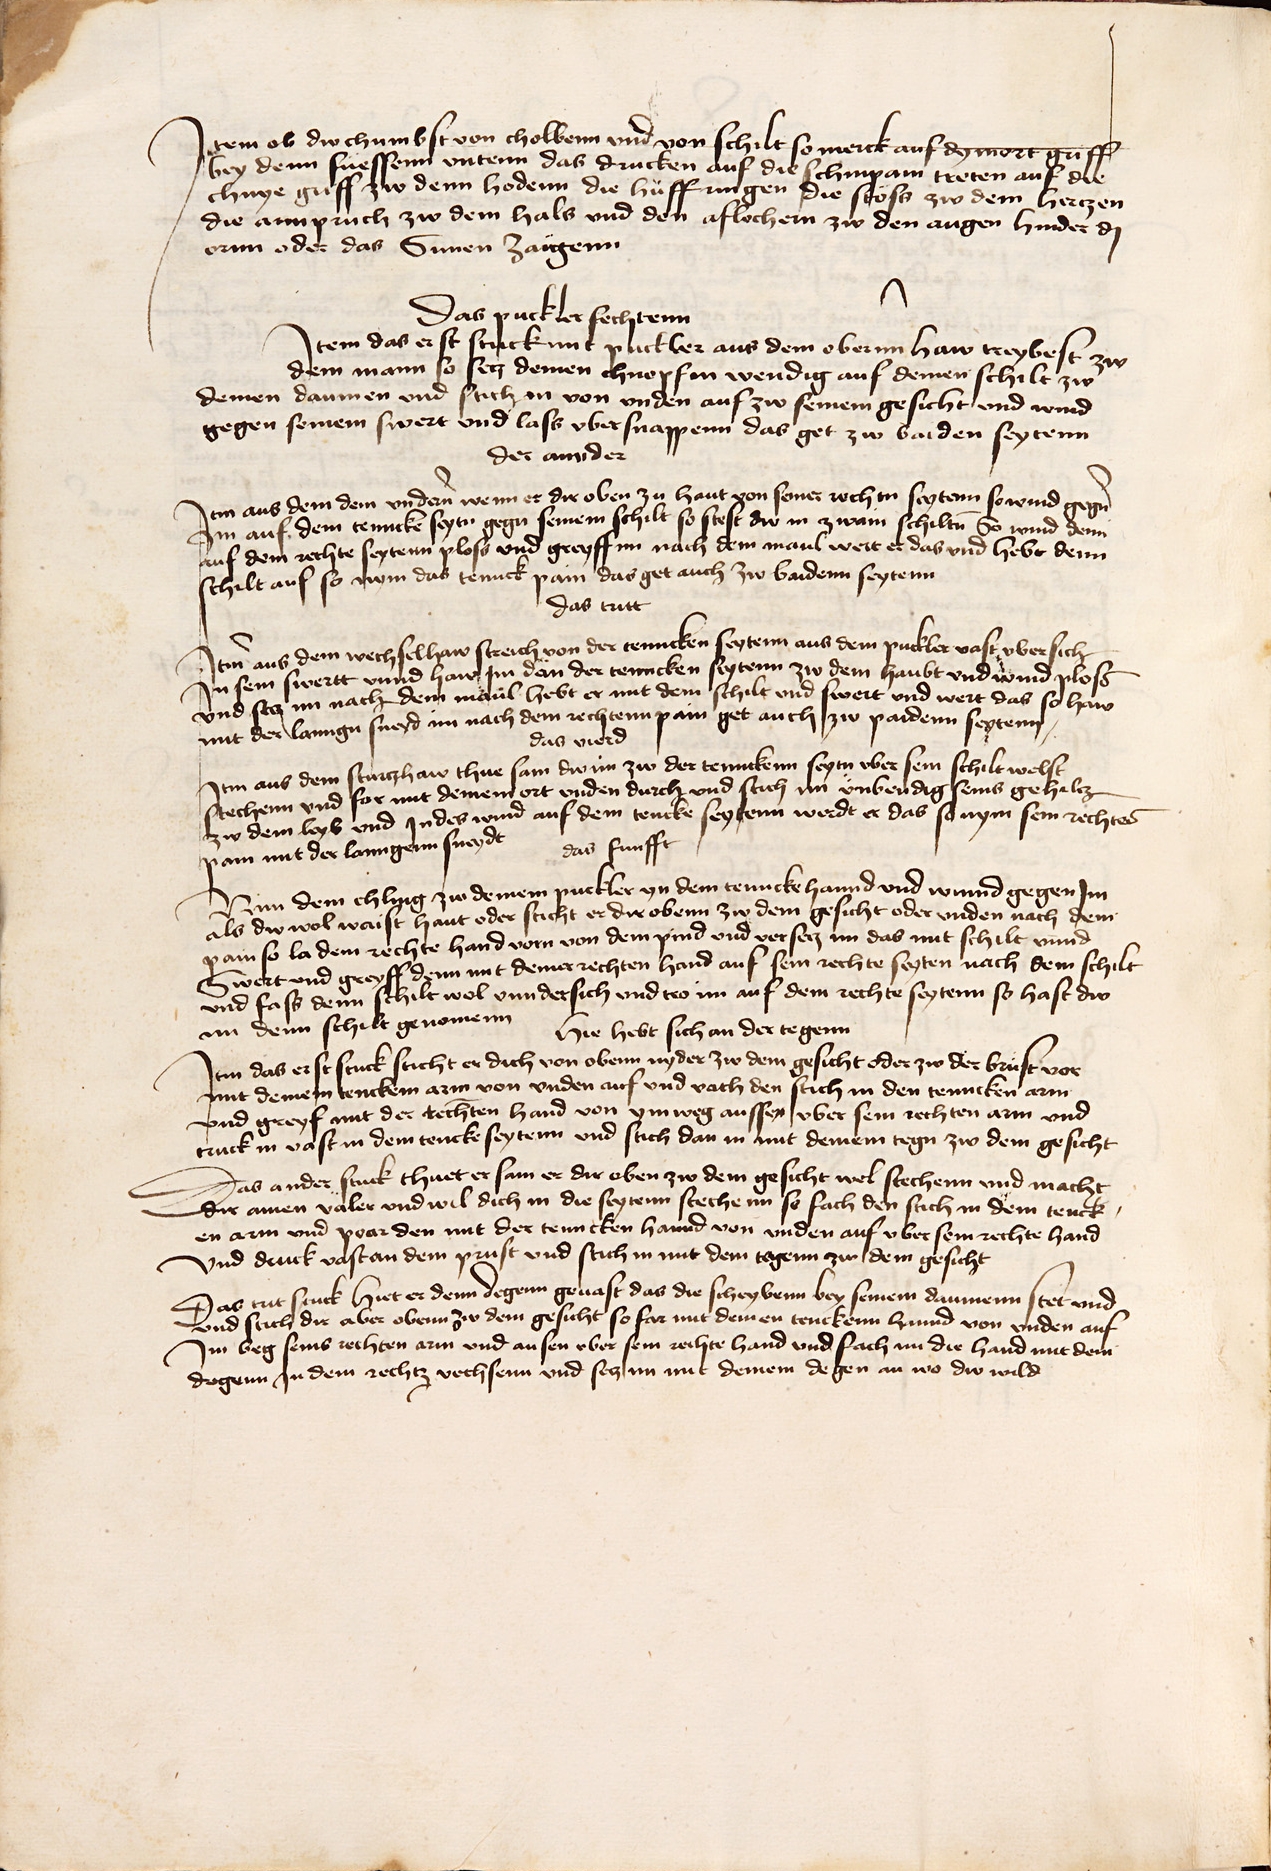 Item ob dw chumbst von cholbenn vnd von schilt so merck auf dy mort griff
bey denn fuessenn vntenn das drucken auf die schinpain treten auf die
chnye griff zw denn hodenn die hüff ringen die stöss zw dem hertzen
die annpruch zw dem hals vnd den aflochern zw den augen hinder dy
ornn oder das Sinnen zaigenn
Das puckler fechtenn
Item das erst stuck mit puckler aus dem obernn haw treybest zw
dem mann so secz deinen chnopf in wendig auf deinen schilt zw
deinen daumen vnd stich in von vnden auf zw seinem gesicht vnd wind
gegen seinem swert vnd lass vbersnappenn das get zw baiden seytenn
der annder
Itm aus dem dem vndern wenn er dir oben zu haut von seiner rechtn seytenn so wind gegn
Im auf dem tenncke seytn gegn seinem schilt so stest dw in zwain schiltn So wind denn
auf dem rechte seytenn ploss vnd greyff im nach dem maul wert er das vnd hebt denn
schilt auf so nym das tenck pain das get auch zw baidenn seytenn
das tritt
Itm aus dem wechselhaw streich von der tenncken seytenn aus dem puckler vast vbersich
In sein swertt vnnd haw Im dan der tenncken seytenn zw dem haubt vnd wind ploss
vnd secz im nach dem maul hebt er mit dem schilt vnd swert vnd wert das so haw
mit der lanngn sneyd im nach dem rechtenn pain get auch zw paidenn seytenn
das vierd
Itm aus dem sturczhaw thue sam dw im zw der tennckenn seytn vber sein schilt welst
stechenn vnd far mit deinem ort vnden durch vnd stich im inbendig seins gehilcz
zw dem leyb vnd Indes wind auf dem tencke seytenn werdt er das so nym sein rechtes
pain mit der lanngenn sneydt
das funfft
Nim dein chling zw deinem puckler yn dein tenncke hannd vnd winnd gegen Im
als dw wol waist haut oder sticht er dir obenn zw dem gesicht oder vnden nach dem
pain so la dein rechte hand vorn von dem pind vnd versecz im das mit schilt vnnd
Swert vnd greyff denn mit deiner rechten hand auf sein rechte seyten nach dem schilt
vnd fass denn schilt wol vnndersich vnd tro im auf dem rechte seytenn so hast dw
im denn schilt genomenn
Hie hebt sich an der tegenn
Itm das erst stuck sticht er dich von obenn nyder zw dem gesicht oder zw der brust var
mit deinem tenckem arm von vnden auf vnd vach den stich in den tenncken arm
vnd greyf mit der rechten hand von ynnweg aussen vber sein rechten arm vnd
truck in vast in dein tencke seytenn vnd stich dan in mit deinem tegn zw dem gesicht
Das ander stuck thuet er sam er dir oben zw dem gesicht wel stechenn vnd macht
dir ainen väler vnd wil dich in die seytenn stechenn so fach den stich in dem tenck
en arm vnd war den mit der tenncken hannd von vnden auf vber sein rechte hand
Vnd druck vast an dem prust vnd stich in mit dem tegenn zw dem gesicht
Das trit stuck Hiet er denn degenn geuast das die scheybenn bey seinem daumenn stet vnd
vnd stich dir aber obenn zw dem gesicht so far mit deinen tenckenn hannd von vnden auf
In beg seins rechten arm vnd ausen vber sein rechte hand vnd fach im die hand mit dem
degenn In dem rechtz vechsenn vnd secz im mit deinem degen an wo dw wild